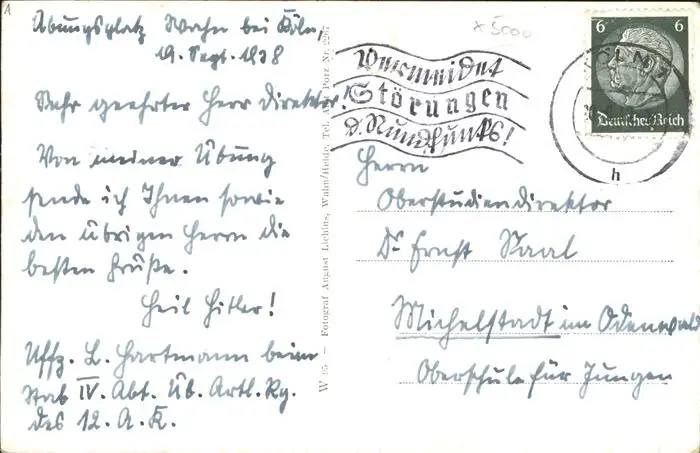 Übungsplatz Wahn bei Köln,
19. Sept. 1938
Sehr geehrter Herr Direktor!
Von meiner Übung
sende ich Ihnen sowie
den übrigen Herrn die
besten Grüße.
Heil Hitler!
Uffz. L. Hartmann beim
Stab IV. Abt. Üb. Artl. Rg.
des 12. A. K.
W 95 – Fotograf August Lichius, Wahn/Heide, Tel. Amt Porz Nr. 2267
x 5000
Vermeidet
Störungen
d. Rundfunks!
6 6
Deutsches Reich
KÖLN
h
Herrn
Oberstudiendirektor
Dr Ernst Saal
Michelstadt im Odenwald
Oberschule für Jungen